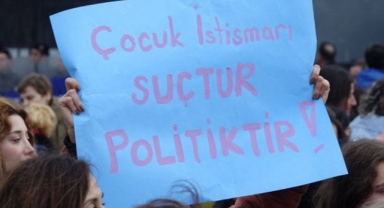 Çocuk İstismarı
SUÇTUR
POLİTİKTİR!